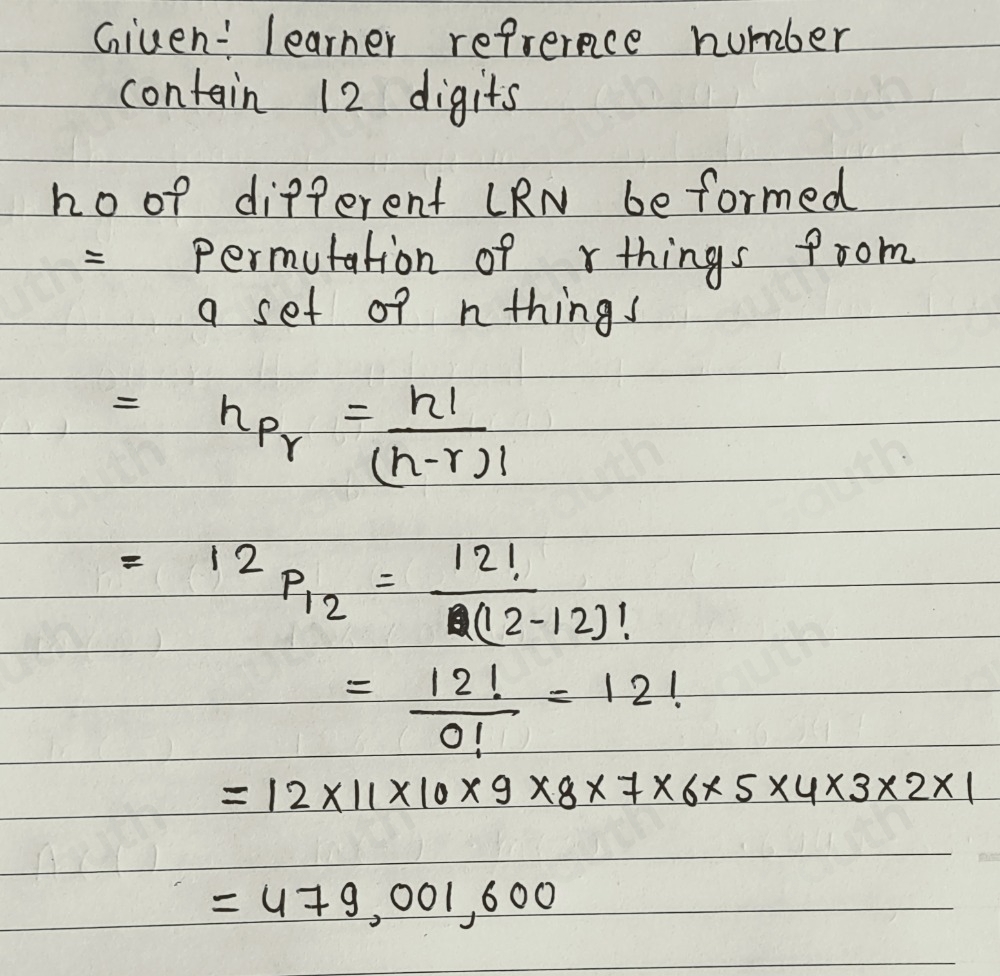 Given:- learner refrernce number
contain 12 digits
no of different LRN be formed
= Permutation of r things from
a set of n things
= nPr = n! / (n-r)!
= 12P12 = 12! / (12-12)!
= 12! / 0! = 12!
= 12×11×10×9×8×7×6×5×4×3×2×1
= 479,001,600